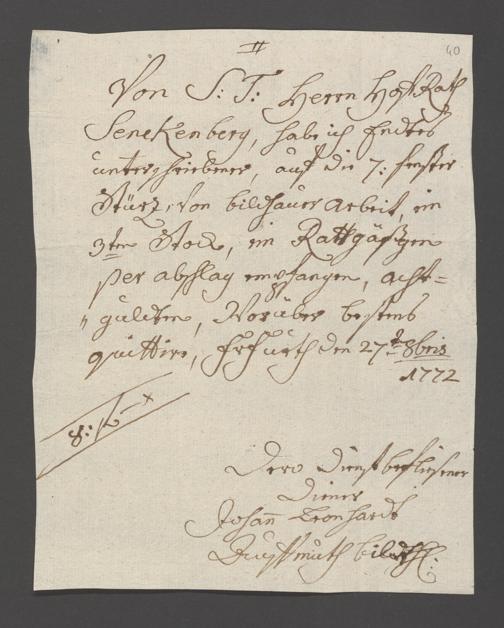 40
Von S: T: Herrn Hof Rath
Senckenberg, habe ich Endes
unterschriebener, auf die 7: fenster
Stürz, von bildhauer arbeit, im
3ten Stock, im
per abschlag empfangen, acht=
"gulden, Worüber bestens
quittire, den 27t 8bris
1772
8: fx
Dero Dienstbeflissener
Diener
Johann Leonhardt
bildh: